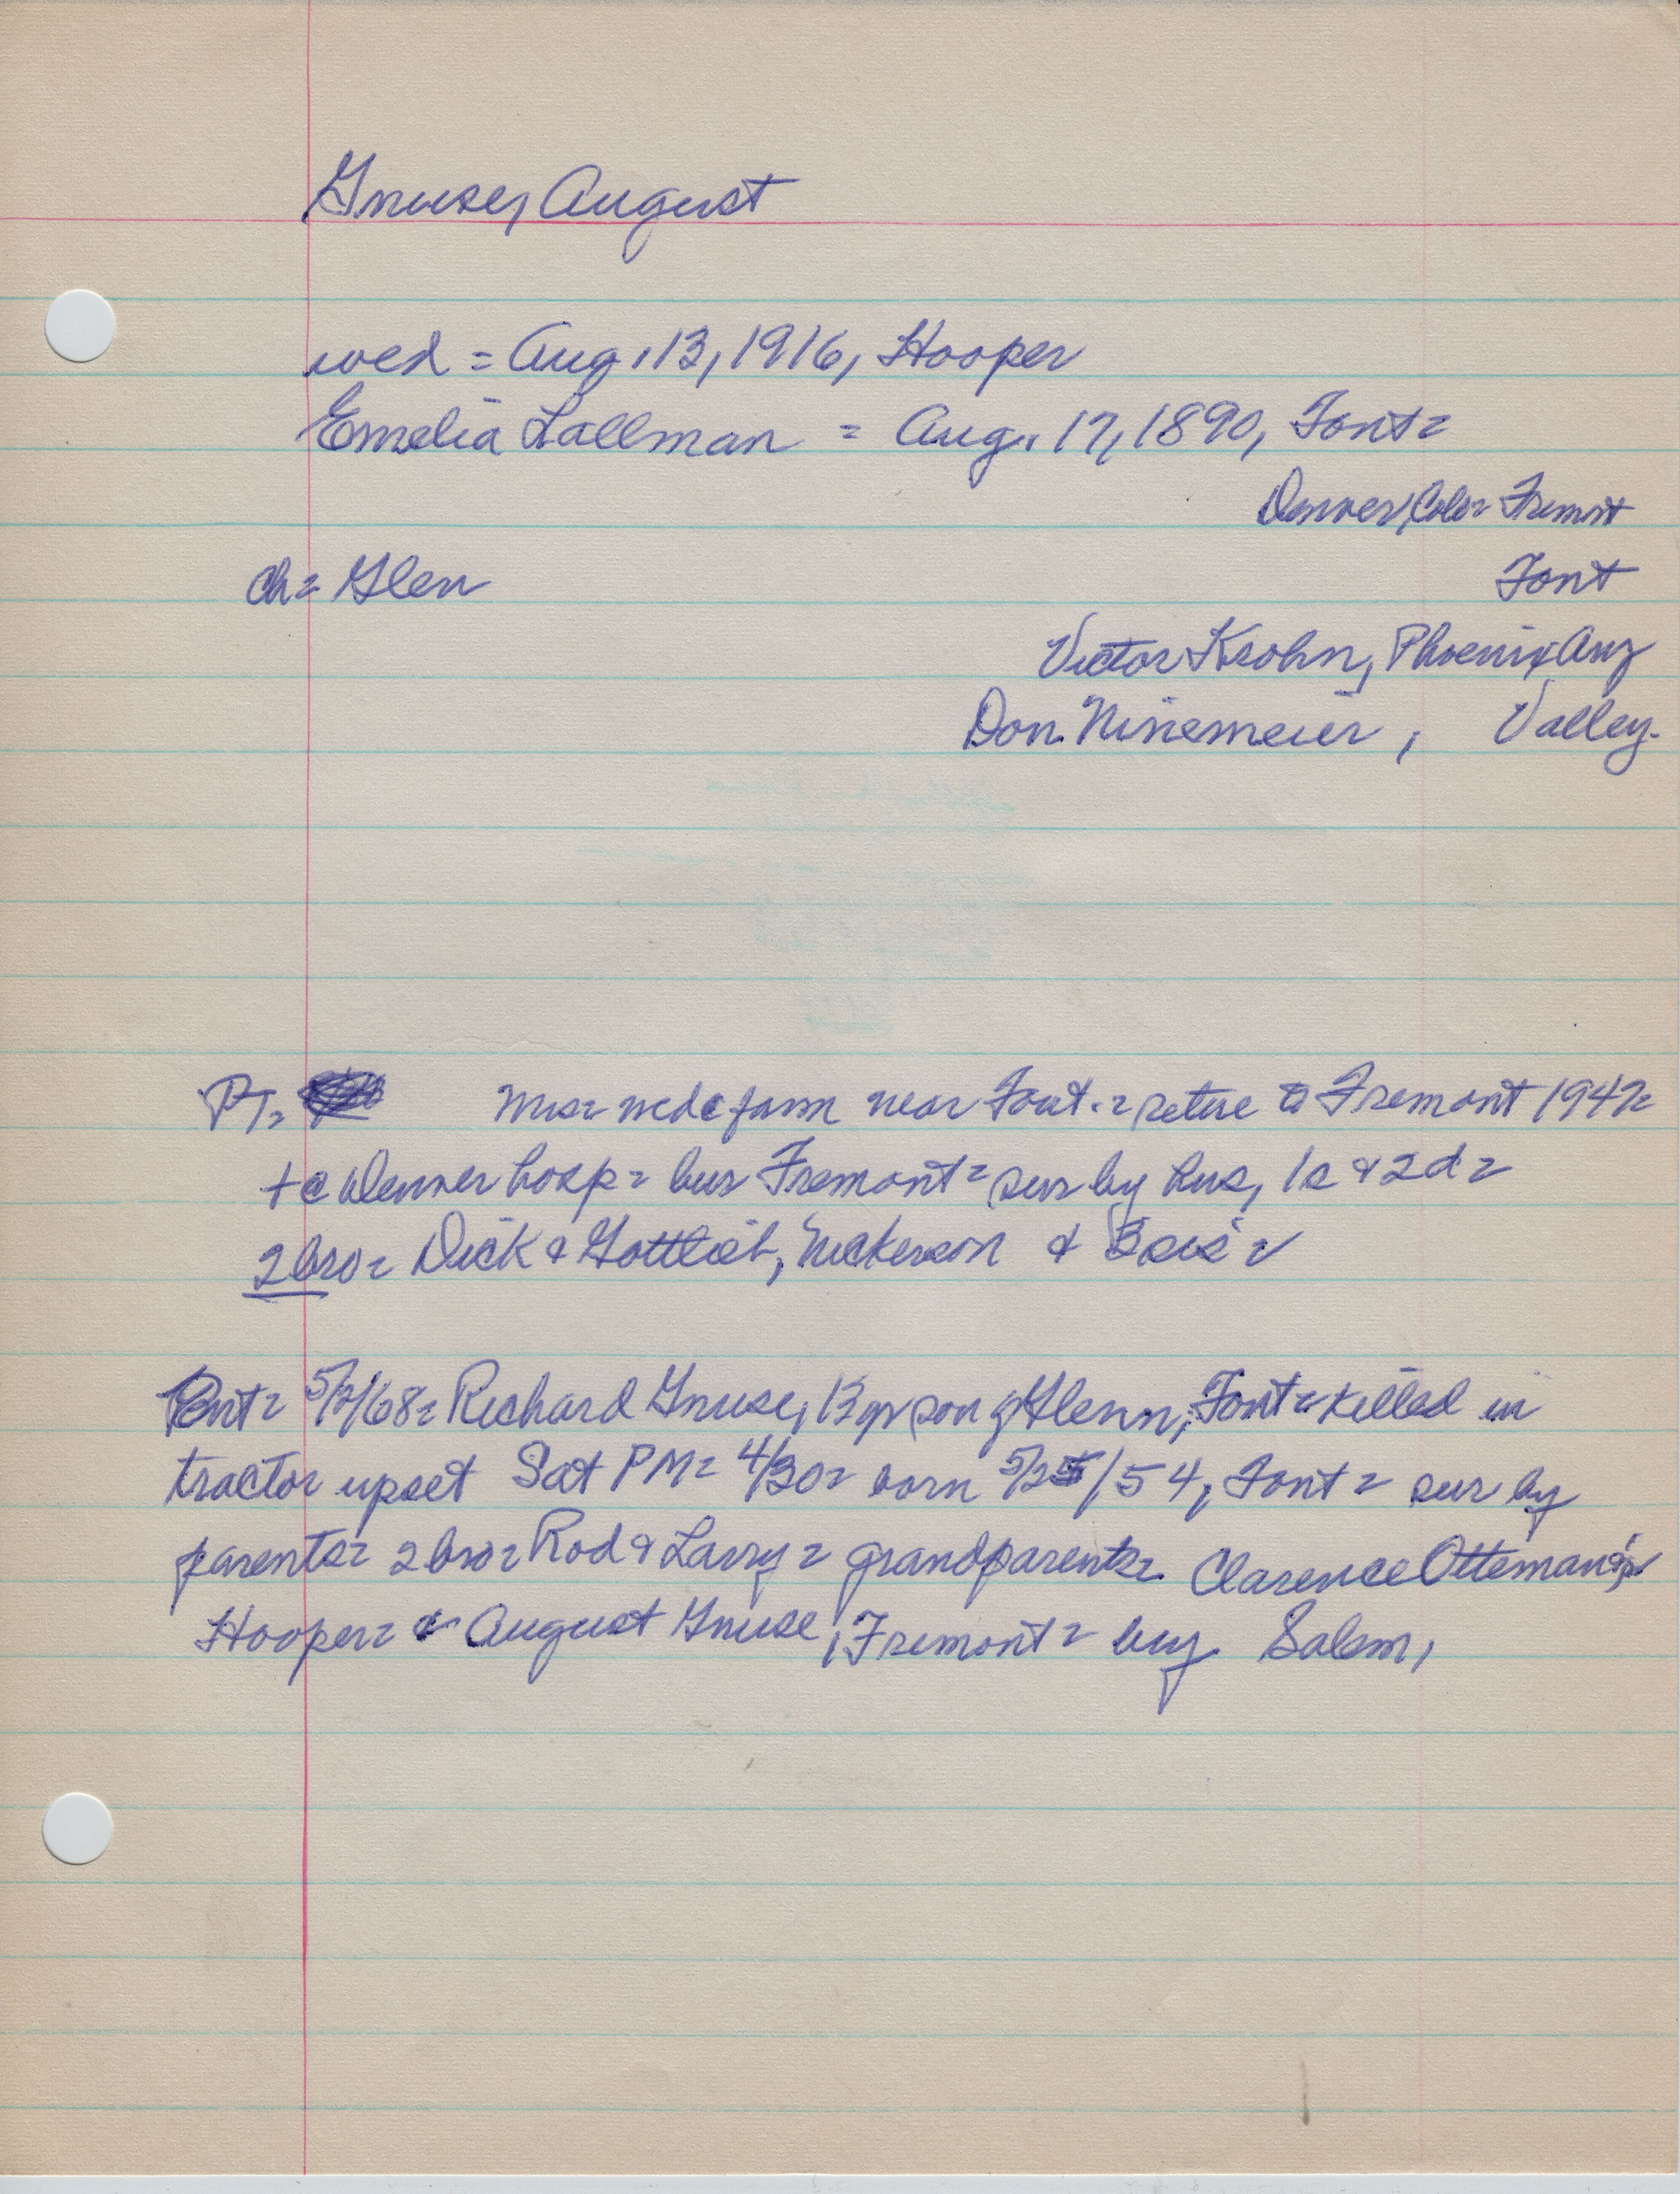 Gnuse, August
wed = Aug. 13, 1916, Hooper
Emelia Lallman = Aug. 17, 1890, Font =
Denver, Colo = Fremont
Ch = Glen Font
Victor Krohn, Phoenix Ariz
Don Ninemeier, Valley.
PT = Mrs = wed c farm near Font. = retire to Fremont 1947 =
+ @ Denver hosp = bur Fremont = sur by hus, 1s & 2d =
2 bro = Dick & Gottlieb, Nickerson & 3 sis =
5/2/68 = Richard Gnuse, 13 yr son of Glenn, Font = killed in
tractor upset Sat PM = 4/30 = born 5/25/54, Font = sur by
parents = 2 bro = Rod & Larry = grandparents = Clarence Otteman's
Hooper = & August Gnuse, Fremont = bury Salem,